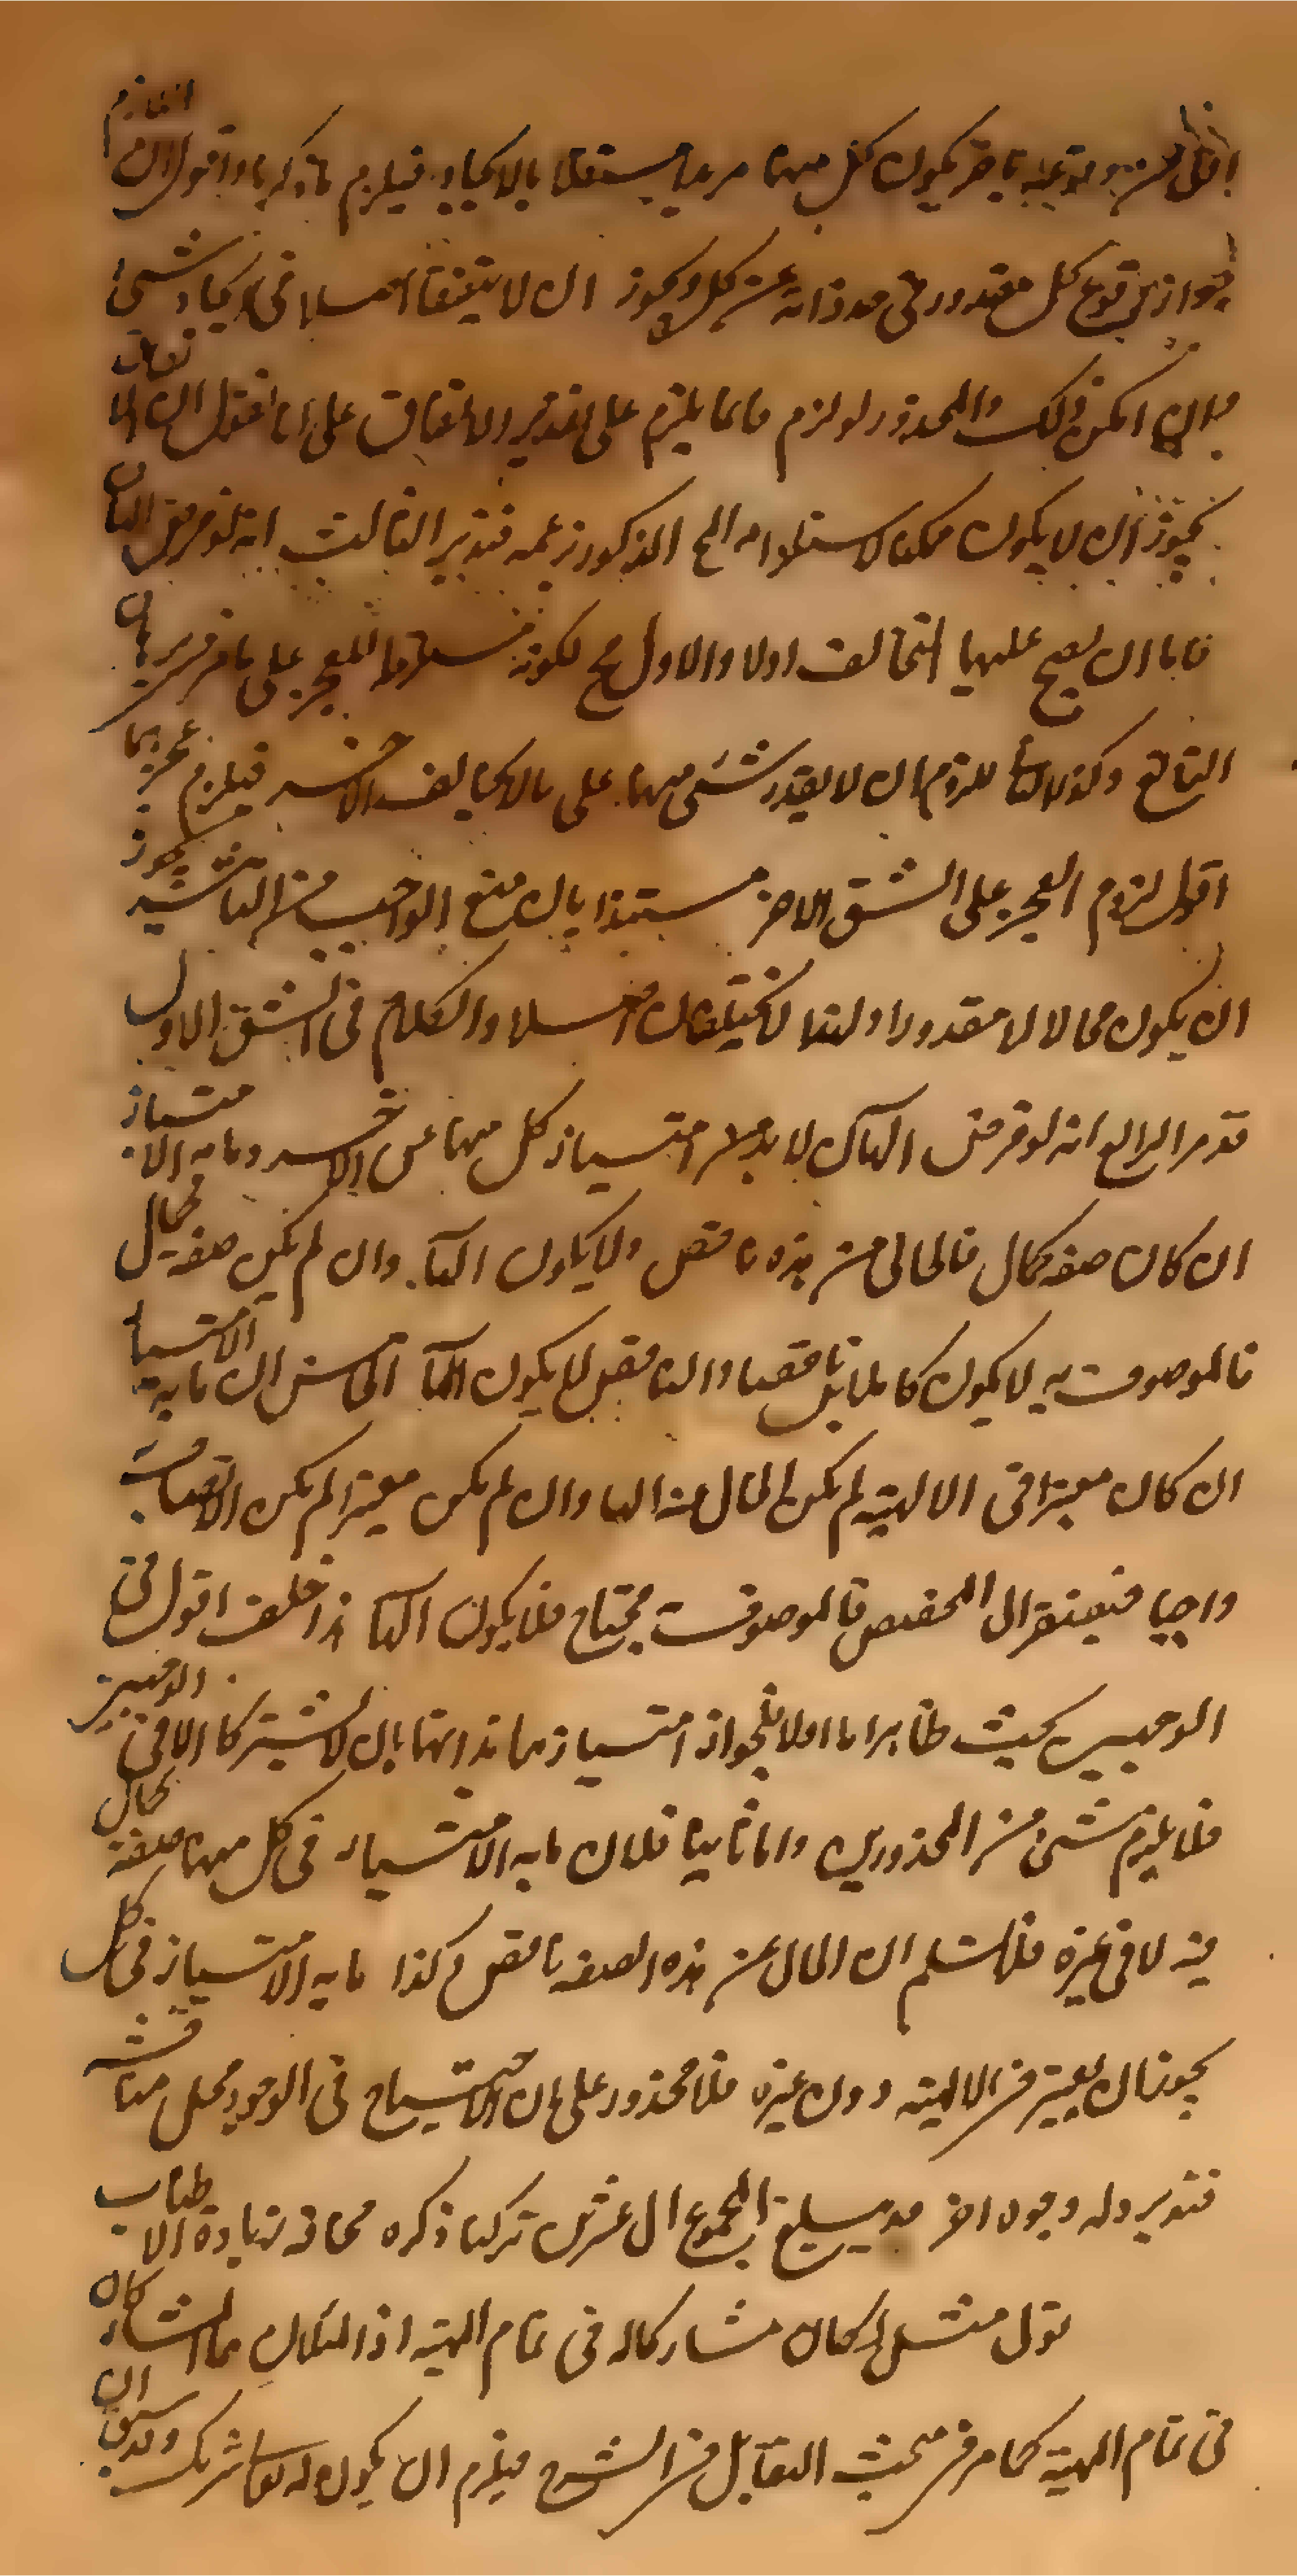 كل منهما مريدا مستقلا بالايجاد فيلزم ما ذكره اقول ان اللازم
جواز وقوع كل مقدور في حد ذاته عن كل ويجوز ان لا يتفقا اصلا في ايجاد شيئ
وان امكن ذلك والمحذور لو لزم فانما يلزم على تقدير الاتفاق على انا نقول ان الاتفاق
يجوز ان لا يكون ممكنا لاستلزامه المح المذكور فتدبر الثالث انه لو فرض الهان
فاما ان يصح عليهما التخالف اولا والاول مح لكونه مستلزما للعجز على ما مر تقريره في
التمانع وكذا الثاني للزوم ان لا يقدر شئ منهما على ما لا يخالف الاخر فيلزم عجزهما
اقول لزوم العجز على الشق الاخر مستندا بان منع الواجب من التأثير يجوز
ان يكون محالا لا مقدورا ولهذا لا يختلفان اصلا والكلام في الشق الاول
قد مر الرابع انه لو فرض الهان لا بد من امتياز كل منهما عن الاخر وما به الامتياز
ان كان صفة كمال فالخالي من هذه ناقص ولا يكون الها وان لم يكن صفة كمال
فالموصوف به لا يكون كاملا بل ناقصا والناقص لا يكون الها الخامس ان ما به الامتياز
ان كان معتبرا في الالهية لم يكن الخالي عنه الها وان لم يكن معتبرا لم يكن الاتصاف به
واجبا فيفتقر الى المخصص فالموصوف محتاج فلا يكون الها هذا خلف اقول في
الوجهين بحث ظاهر اما اولا فلجواز امتيازهما بذاتهما بان لا يشتركا الا في الوجهين
فلا يلزم شئ من المحذورين واما ثانيا فلان ما به الامتياز في كل منهما صفة كمال
فيه لا في غيره فلا نسلم ان الخالي عن هذه الصفة ناقص وكذا ما به الامتياز في كل
يجوز ان يعتبر في الالهية دون غيره فلا محذور على ان الاحتياج في الوجود محل مناقشة
فتدبر وله وجوه اخر قد يبلغ المجموع الى عشرين تركنا ذكره مخافة زيادة الاطناب
قوله مثل لكان مشاركا له في تمام المهية اذ المثلان هما المشاركان
في تمام المهية كما مر في مبحث التقابل من الشرح فيلزم ان يكون له تعالى شريك وقد سبق ان